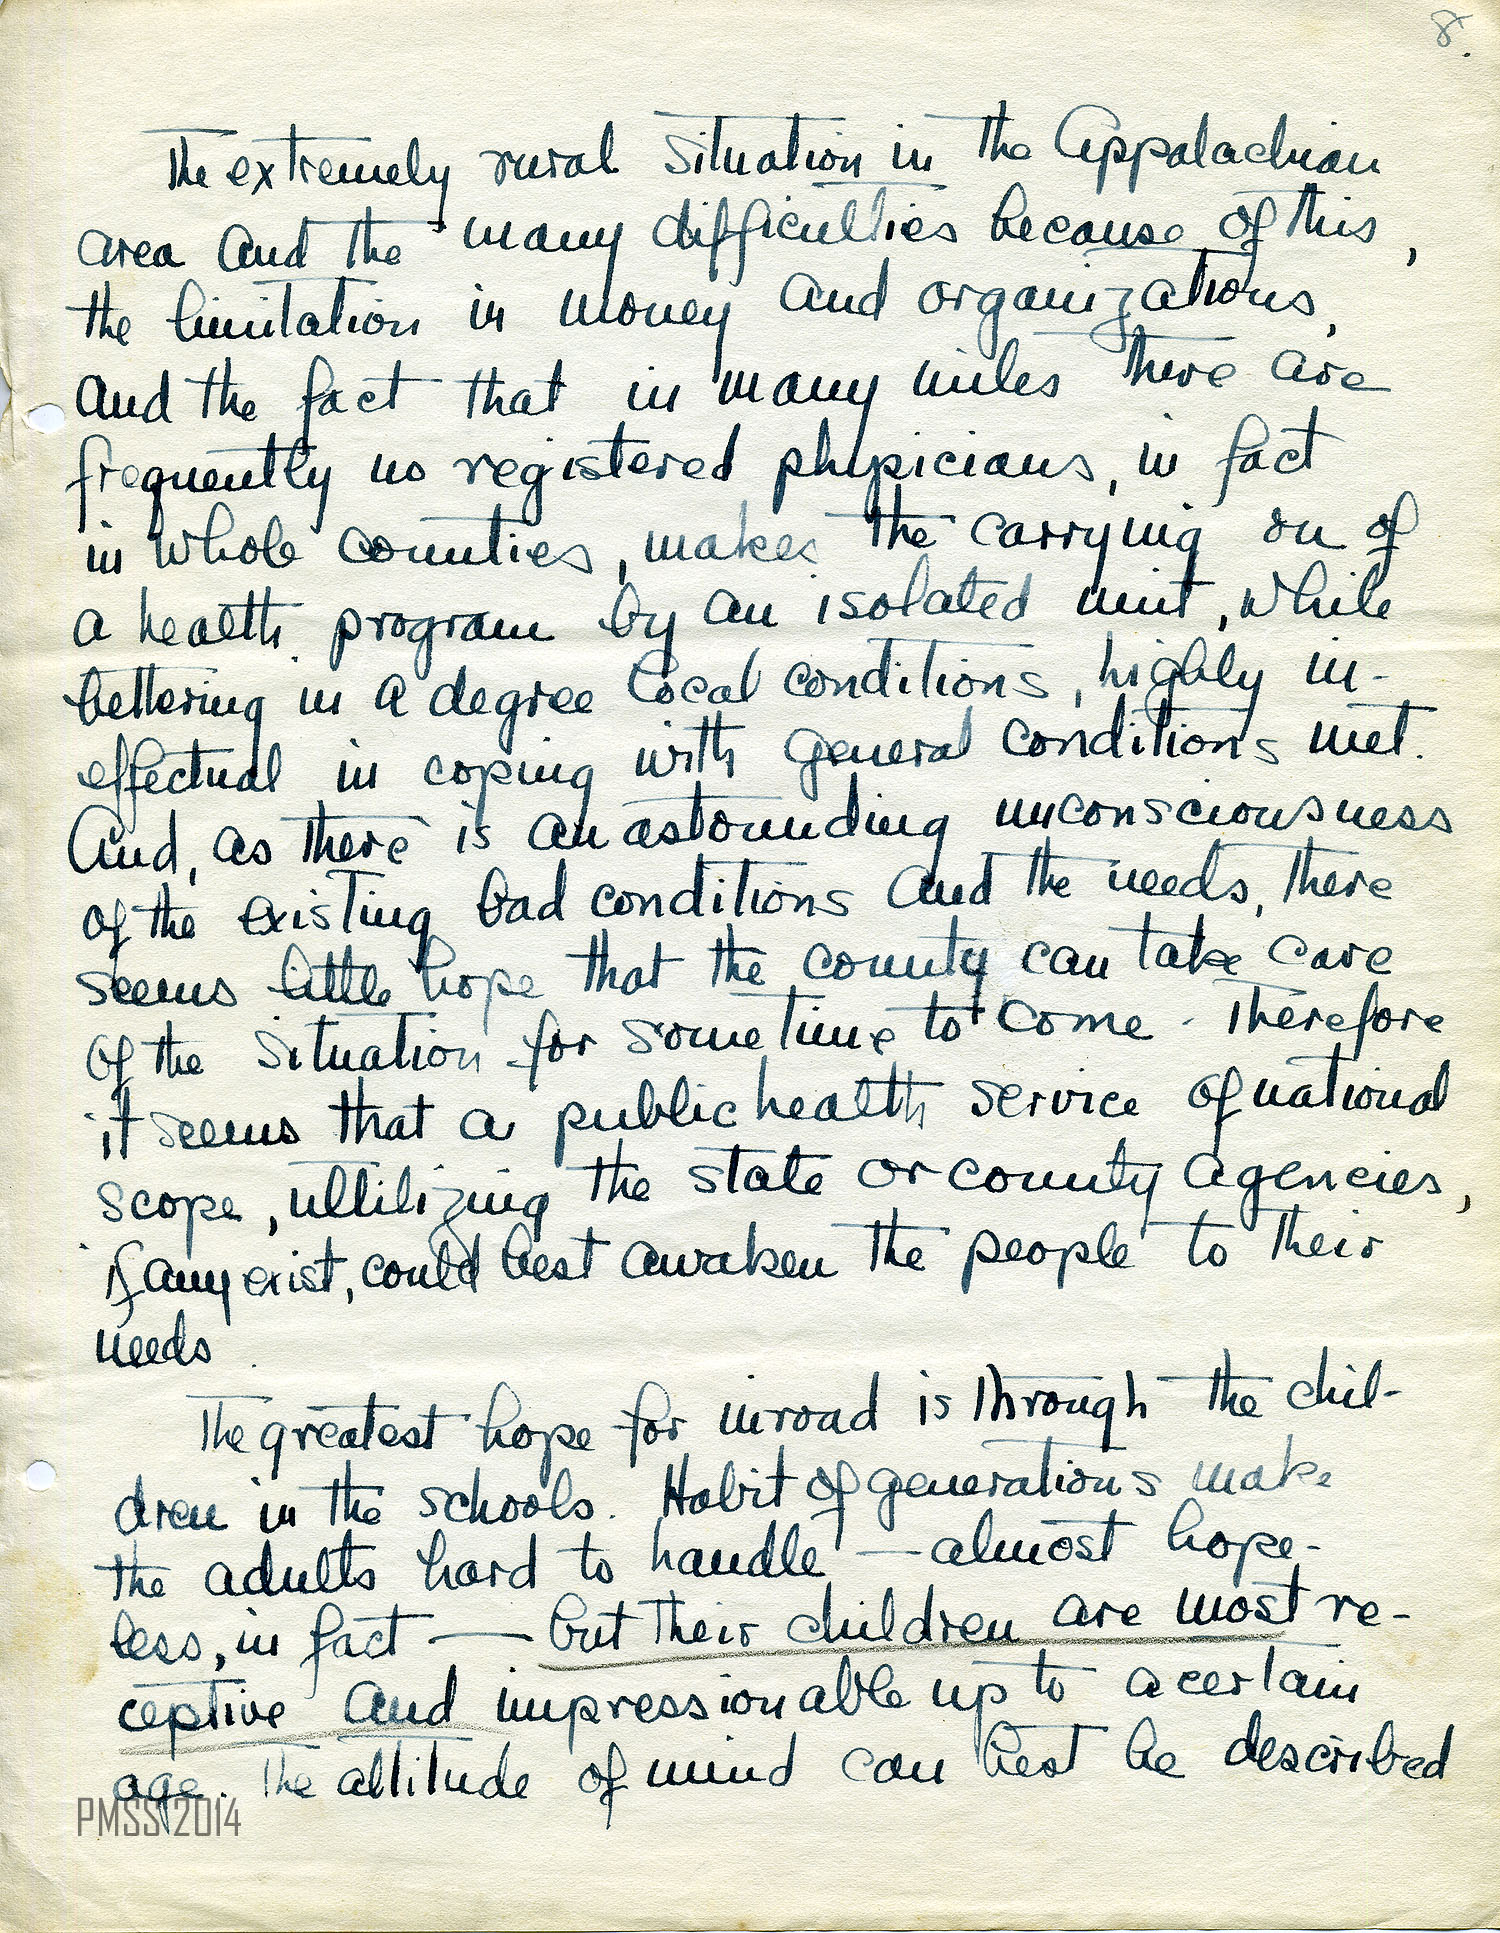 8.
The extremely rural situation in the Appalachian
area and the many difficulties because of this,
the limitation in money and organizations,
and the fact that in many miles there are
frequently no registered physicians, in fact
in whole counties, makes the carrying on of
a health program by an isolated unit, while
bettering in a degree local conditions, highly in-
effectual in coping with general conditions met.
And, as there is an astounding unconsciousness
of the existing bad conditions and the needs, there
seems little hope that the county can take care
of the situation for sometime to come. Therefore
it seems that a public health service of national
scope, utilizing the state or county agencies,
if any exist, could best awaken the people to their
needs.
The greatest hope for inroad is through the chil-
dren in the schools. Habit of generations make
the adults hard to handle — almost hope-
less, in fact — but their children are most re-
ceptive and impressionable up to a certain
age. The attitude of mind can best be described
PMSS 2014